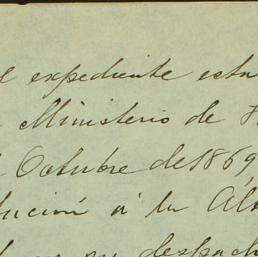 l expediente estu
Ministerio de F
Octubre de 1869
tución á la Alt
su despach